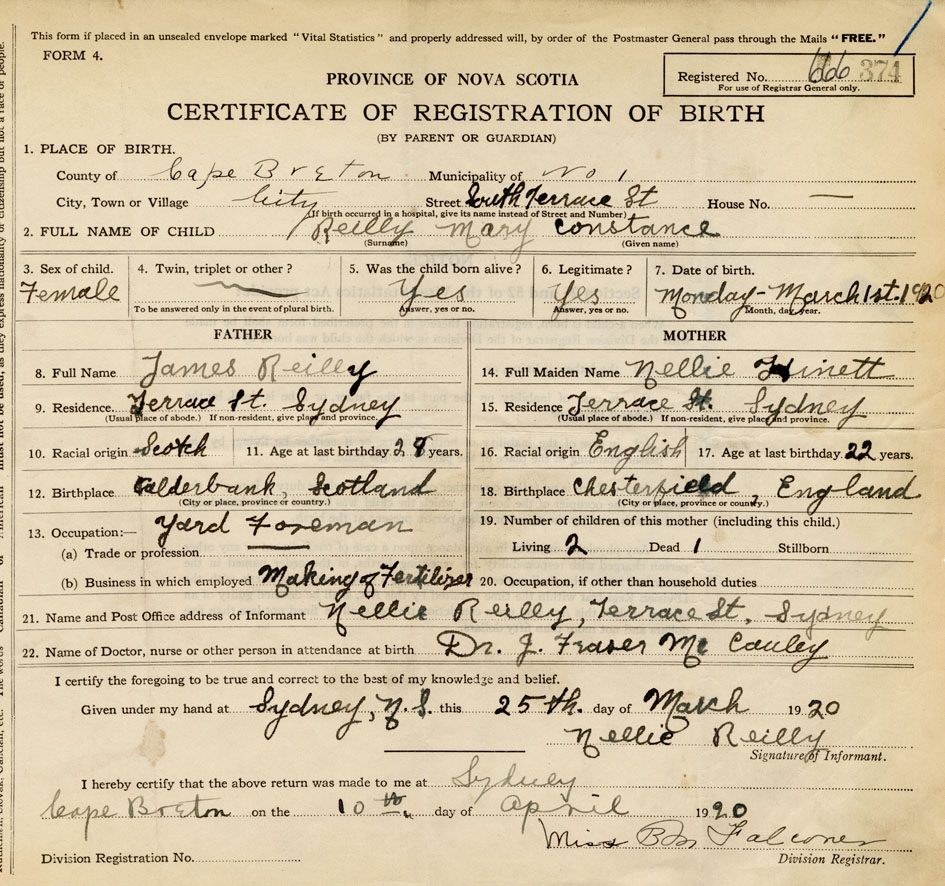 This form if placed in an unsealed envelope marked "Vital Statistics" and properly addressed will, by order of the Postmaster General pass through the Mails "FREE."
FORM 4.
Registered No. 666 374
For use of Registrar General only.
PROVINCE OF NOVA SCOTIA
CERTIFICATE OF REGISTRATION OF BIRTH
(BY PARENT OR GUARDIAN)
1. PLACE OF BIRTH.
County of Cape Breton Municipality of No 1
City, Town or Village City Street South Terrace St House No. —
(If birth occurred in a hospital, give its name instead of Street and Number)
2. FULL NAME OF CHILD Reilly Mary Constance
(Surname) (Given name)
3. Sex of child. 4. Twin, triplet or other? 5. Was the child born alive? 6. Legitimate? 7. Date of birth.
Female Yes Yes Monday - March 1st. 1920
To be answered only in the event of plural birth. Answer, yes or no. Answer, yes or no. Month, day, year.
FATHER MOTHER
8. Full Name James Reilly 14. Full Maiden Name Nellie
9. Residence. Terrace St. Sydney 15. Residence Terrace St. Sydney
(Usual place of abode.) If non-resident, give place and province. (Usual place of abode.) If non-resident, give place and province.
10. Racial origin Scotch 11. Age at last birthday 28 years. 16. Racial origin English 17. Age at last birthday 22 years.
12. Birthplace Calderbank, Scotland 18. Birthplace Chesterfield, England
(City or place, province or country.) (City or place, province or country.)
13. Occupation:— Yard Foreman 19. Number of children of this mother (including this child.)
(a) Trade or profession Living 2 Dead 1 Stillborn
(b) Business in which employed Making of Fertilizer 20. Occupation, if other than household duties
21. Name and Post Office address of Informant Nellie Reilly, Terrace St, Sydney
22. Name of Doctor, nurse or other person in attendance at birth Dr. J. Fraser Mc Cauley
I certify the foregoing to be true and correct to the best of my knowledge and belief.
Given under my hand at Sydney, N.S. this 25th. day of March 1920
Nellie Reilly
Signature of Informant.
I hereby certify that the above return was made to me at Sydney
Cape Breton on the 10th. day of April 1920
Miss Falconer
Division Registration No. Division Registrar.